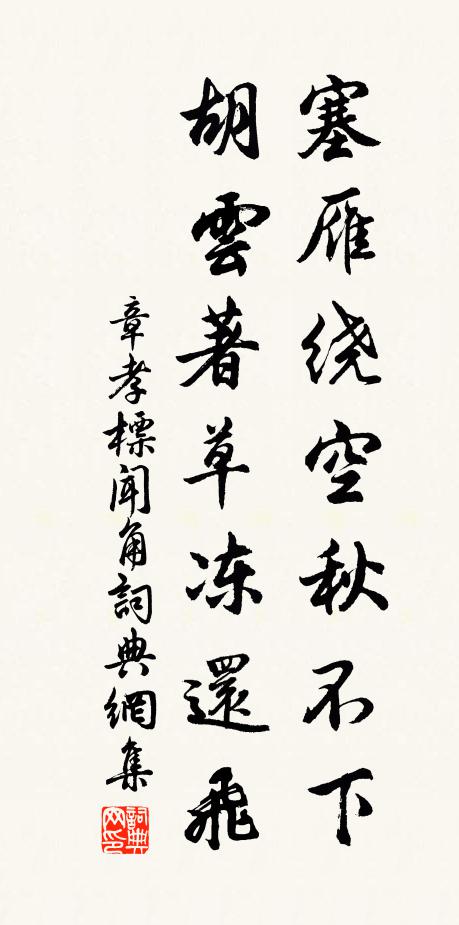 塞雁绕空秋不下
胡雲著草冻還飛
章孝標闻角詞典網集
詞典网印